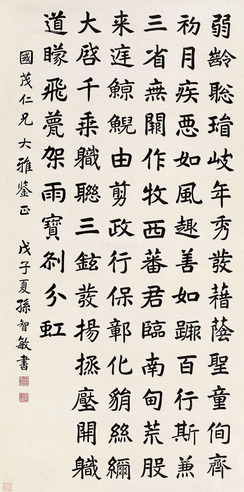 弱齡聡岐年秀發藉蔭聖童侚齊
初月疾惡如風趣善如百行斯兼
三省無闕作牧西蕃君臨南甸荒服
来庭鯨鯢由剪政行保鄣化絲
大啓千乘職聯三鉉發揚拯壓開職
道矇飛甍架雨寶刹分虹
國茂仁兄大雅鑒正 戊子夏孫智敏書